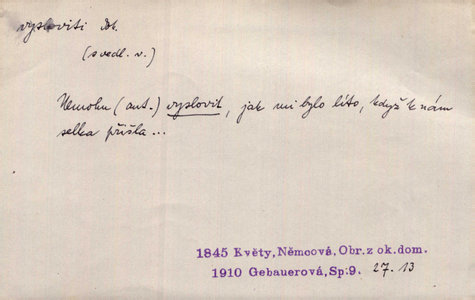 vysloviti dk.
(s vedl. v.)
Nemohu (aut.) vyslovit, jak mi bylo líto, když k nám
selka přišla...
1845 Květy, Němcová, Obr. z ok. dom.
1910 Gebauerová, Sp. 9. 27.13